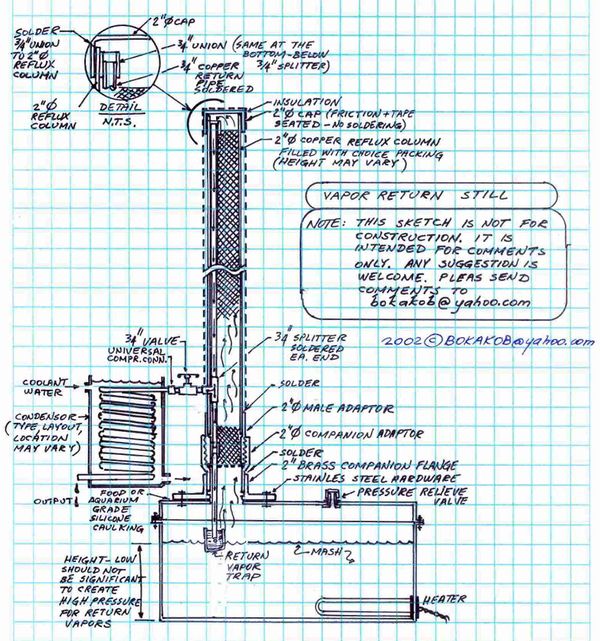 2"Ø CAP
SOLDER
3/4" UNION
TO 2"Ø
REFLUX
COLUMN
3/4" UNION (SAME AT THE
BOTTOM-BELOW
3/4" SPLITTER)
3/4" COPPER
RETURN
PIPE
SOLDERED
2"Ø
REFLUX
COLUMN
DETAIL
N.T.S.
INSULATION
2"Ø CAP (FRICTION + TAPE
SEATED - NO SOLDERING)
2"Ø COPPER REFLUX COLUMN
FILLED WITH CHOICE PACKING
(HEIGHT MAY VARY)
VAPOR RETURN STILL
NOTE: THIS SKETCH IS NOT FOR
CONSTRUCTION. IT IS
INTENDED FOR COMMENTS
ONLY. ANY SUGGESTION IS
WELCOME. PLEAS SEND
COMMENTS TO
bokakob@yahoo.com
2002 © BOKAKOB@yahoo.com
3/4" VALVE
UNIVERSAL
COMPR. CONN.
3/4" SPLITTER
SOLDERED
EA. END
COOLANT
WATER
CONDENSOR
(TYPE, LAYOUT,
LOCATION
MAY VARY)
OUTPUT
SOLDER
2"Ø MALE ADAPTOR
2"Ø COMPANION ADAPTOR
SOLDER
2" BRASS COMPANION FLANGE
STAINLES STEEL HARDWARE
PRESSURE RELIEVE
VALVE
FOOD OR
AQUARIUM
GRADE
SILICONE
CAULKING
RETURN
VAPOR
TRAP
MASH
HEIGHT-LOW
SHOULD NOT
BE SIGNIFICANT
TO CREATE
HIGH PRESSURE
FOR RETURN
VAPORS
HEATER